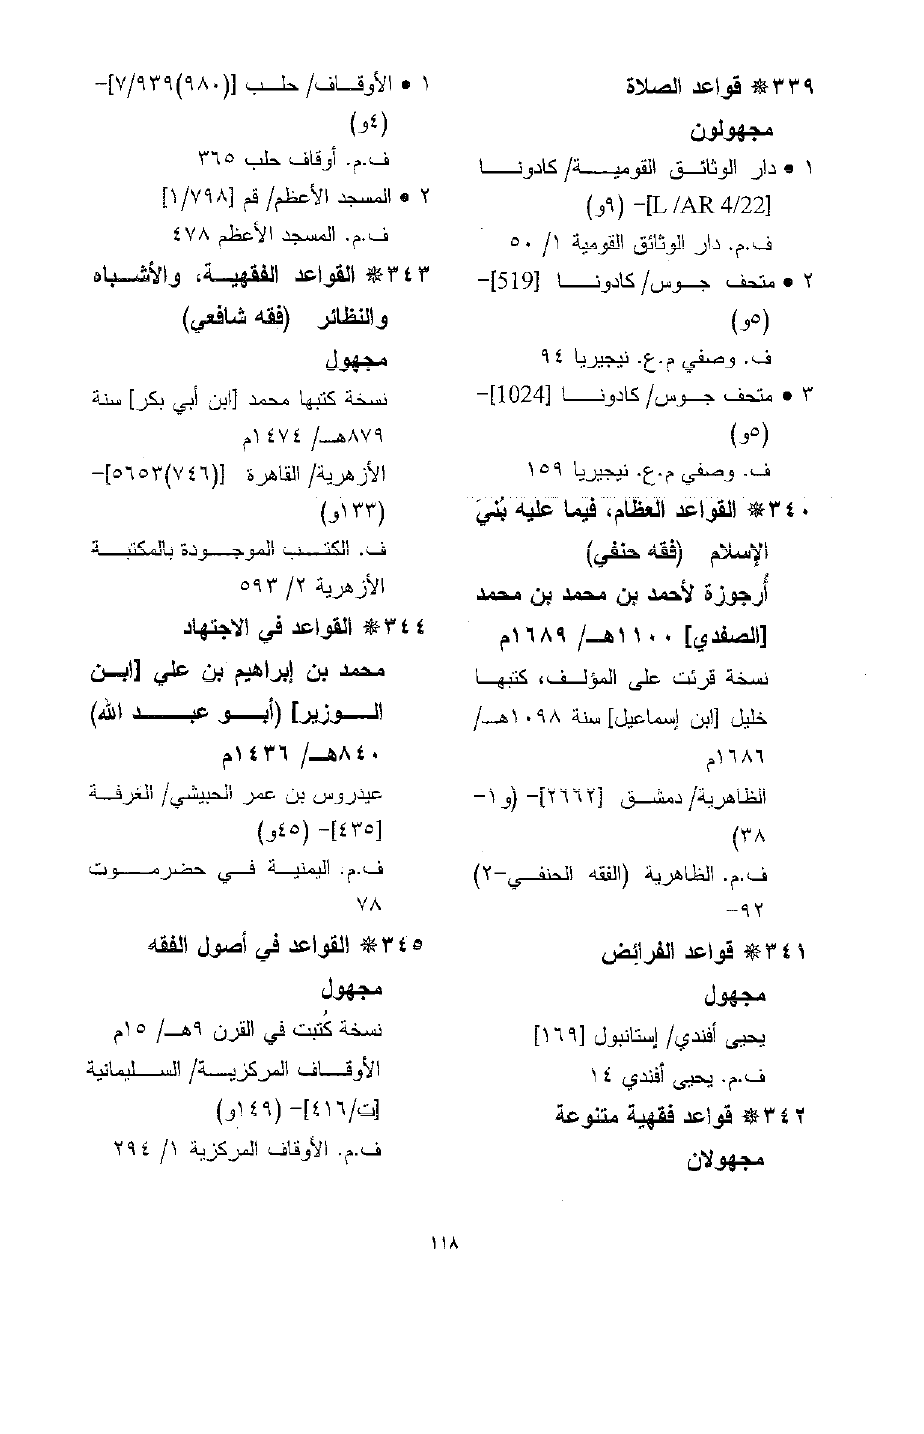 ٣٣٩* قواعد الصلاة
مجهولون
١ • دار الوثائق القومية/ كادونا
[L /AR 4/22]- (٩و)
ف.م. دار الوثائق القومية ١/ ٥٠
٢ • متحف جوس/ كادونا [519]-
(٥و)
ف. وصفي م.ع. نيجيريا ٩٤
٣ • متحف جوس/ كادونا [1024]-
(٥و)
ف. وصفي م.ع. نيجيريا ١٥٩
٣٤٠* القواعد العظام، فيما عليه بُنيَ
الإسلام (فقه حنفي)
أُرجوزة لأحمد بن محمد بن محمد
[الصفدي] ١١٠٠هـ/ ١٦٨٩م
نسخة قرئت على المؤلف، كتبها
خليل [ابن إسماعيل] سنة ١٠٩٨هـ/
١٦٨٦م
الظاهرية/ دمشق [٢٦٦٢]- (و١-
٣٨)
ف.م. الظاهرية (الفقه الحنفي-٢)
٩٢-
٣٤١* قواعد الفرائض
مجهول
يحيى أفندي/ إستانبول [١٦٩]
ف.م. يحيى أفندي ١٤
٣٤٢* قواعد فقهية متنوعة
مجهولان
١ • الأوقاف/ حلب [(٩٨٠)٧/٩٣٩]-
(٤و)
ف.م. أوقاف حلب ٣٦٥
٢ • المسجد الأعظم/ قم [١/٧٩٨]
ف.م. المسجد الأعظم ٤٧٨
٣٤٣* القواعد الفقهية، والأشباه
والنظائر (فقه شافعي)
مجهول
نسخة كتبها محمد [ابن أبي بكر] سنة
٨٧٩هـ/ ١٤٧٤م
الأزهرية/ القاهرة [(٧٤٦)٥٦٥٣]-
(١٣٣و)
ف. الكتب الموجودة بالمكتبة
الأزهرية ٢/ ٥٩٣
٣٤٤* القواعد في الاجتهاد
محمد بن إبراهيم بن علي [ابن
الوزير] (أبو عبد الله)
٨٤٠هـ/ ١٤٣٦م
عيدروس بن عمر الحبيشي/ الغرفة
[٤٣٥]- (٤٥و)
ف.م. اليمنية في حضرموت
٧٨
٣٤٥* القواعد في أصول الفقه
مجهول
نسخة كُتبت في القرن ٩هـ/ ١٥م
الأوقاف المركزية/ السليمانية
[ت/٤١٦]- (١٤٩و)
ف.م. الأوقاف المركزية ١/ ٢٩٤
١١٨